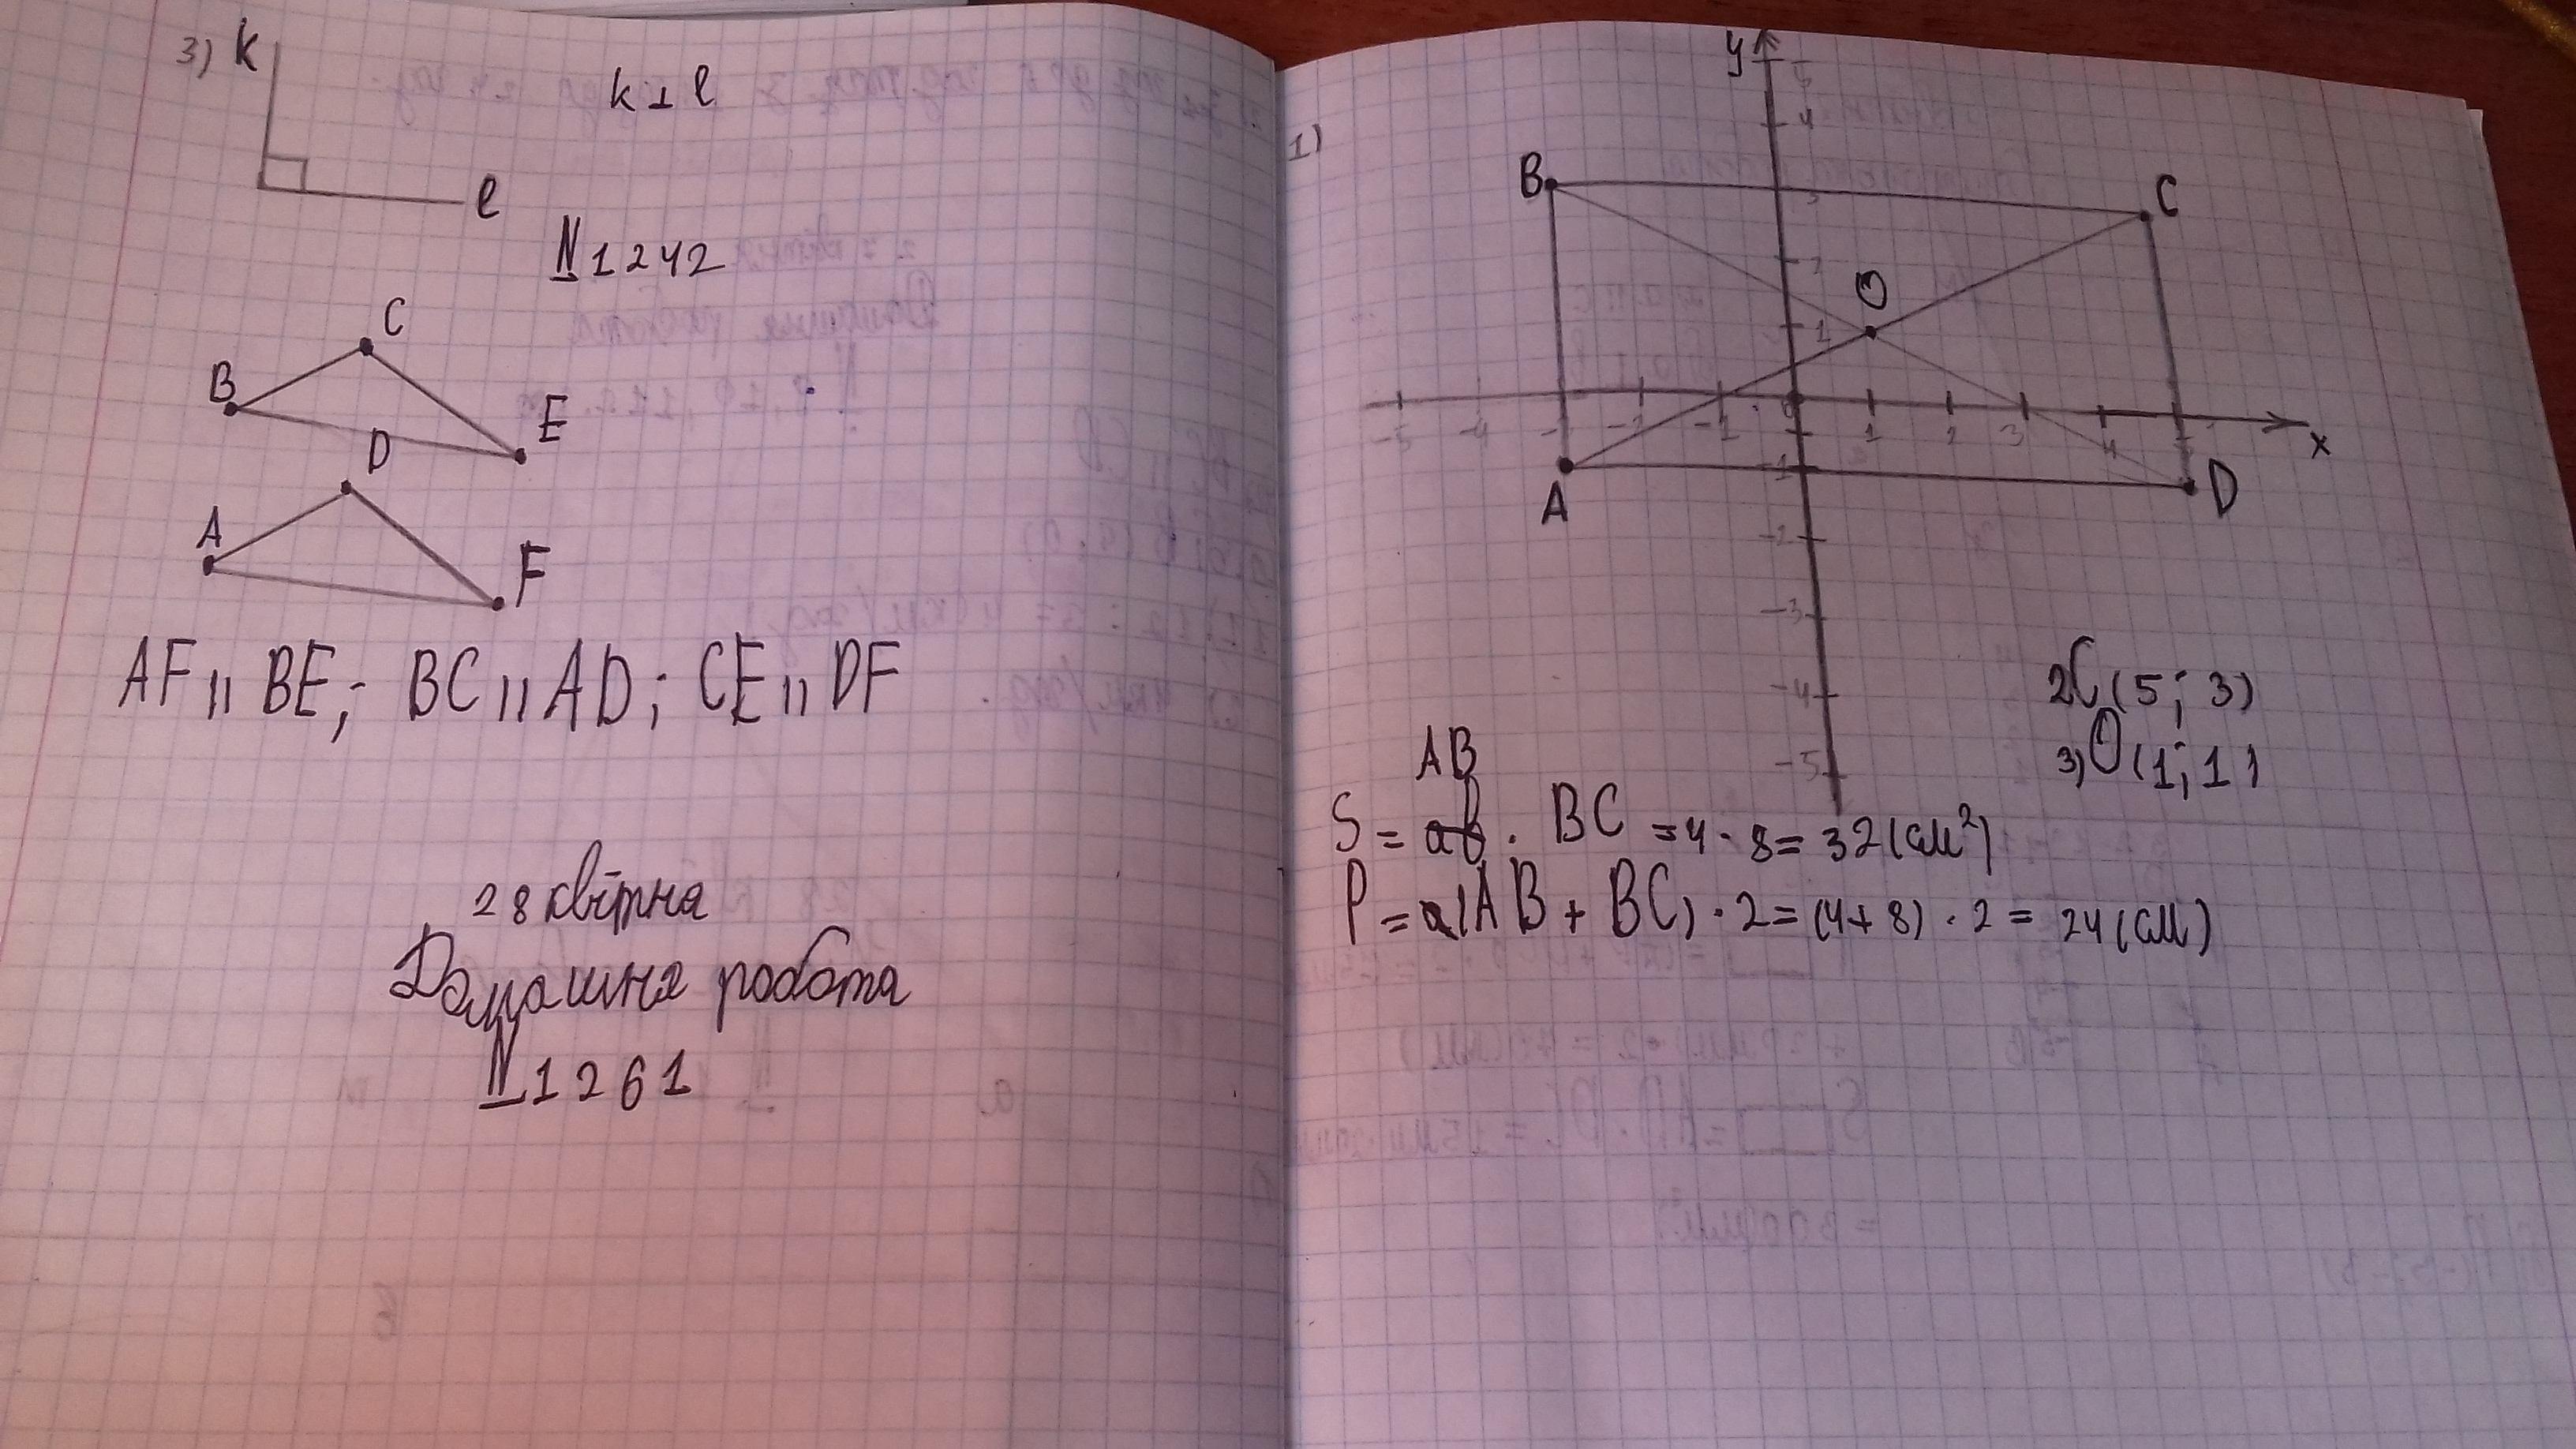 3) k
k ⊥ l
l
№1242
C
B
E
D
A
F
AF || BE; BC || AD; CE || DF
28 квітня
Домашня робота
№1261
1)
y
5
4
B
C
3
2
O
1
-5 -4 -3 -2 -1 0 1 2 3 4 5
x
-1
A
D
-2
-3
-4
-5
2) C (5; 3)
3) O (1; 1)
AB
S = ab · BC = 4 · 8 = 32 (см²)
P = a(AB + BC) · 2 = (4 + 8) · 2 = 24 (см)